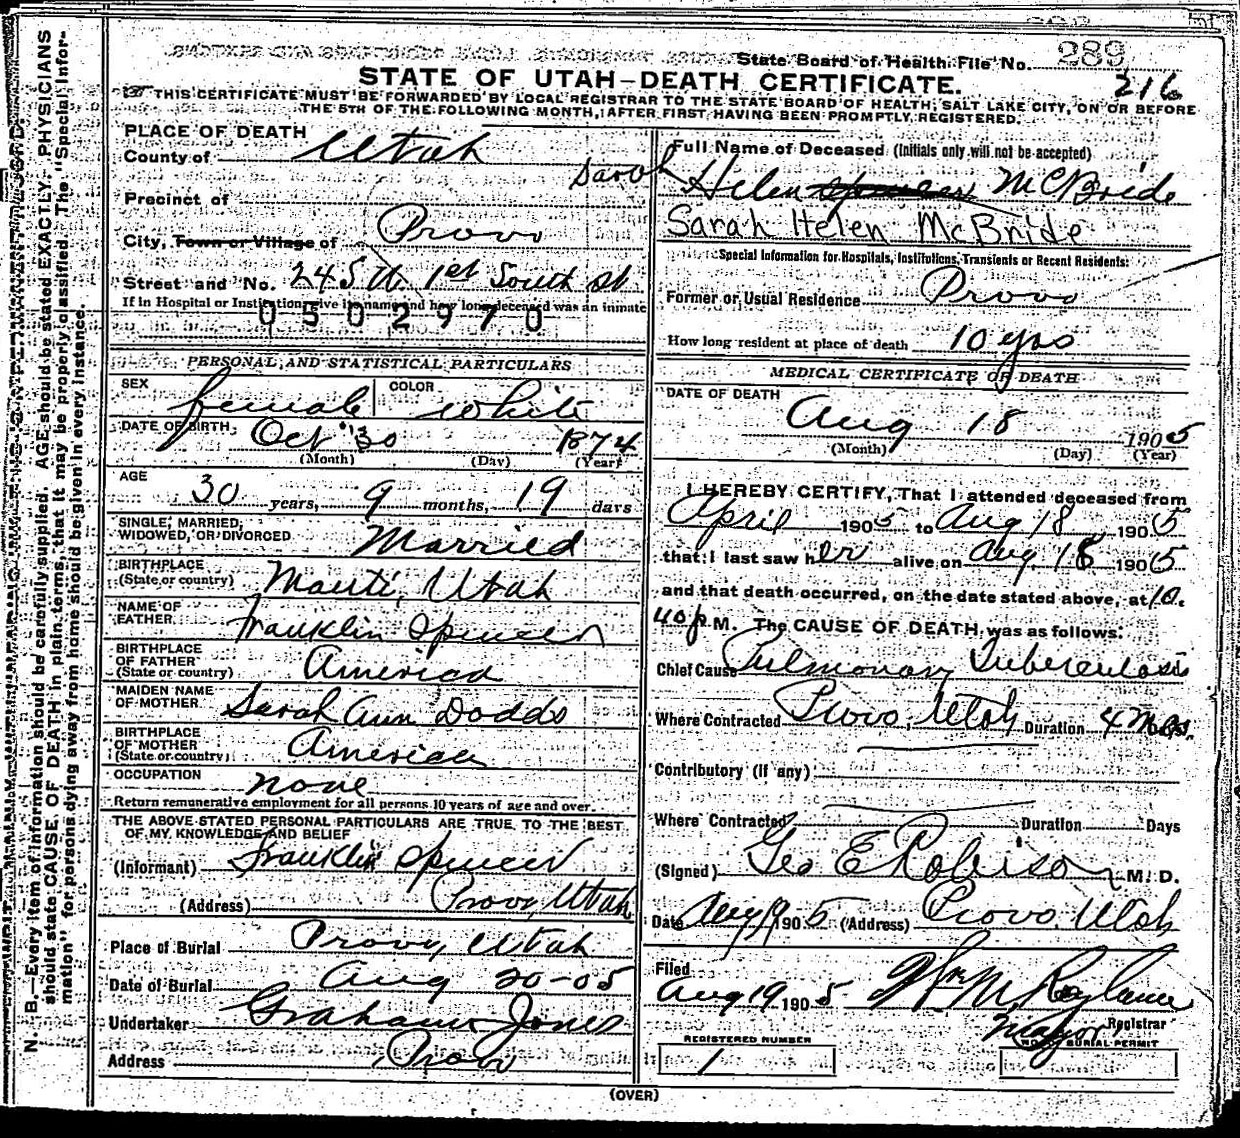 State Board of Health File No. 289
216
STATE OF UTAH—DEATH CERTIFICATE.
THIS CERTIFICATE MUST BE FORWARDED BY LOCAL REGISTRAR TO THE STATE BOARD OF HEALTH, SALT LAKE CITY, ON OR BEFORE
THE 5TH OF THE FOLLOWING MONTH, AFTER FIRST HAVING BEEN PROMPTLY REGISTERED.
N. B.—Every item of information should be carefully supplied. AGE should be stated EXACTLY. PHYSICIANS
should state CAUSE OF DEATH in plain terms, that it may be properly classified. The "Special Infor-
mation" for persons dying away from home should be given in every instance.
PLACE OF DEATH
County of Utah
Precinct of
City, Town or Village of Provo
Street and No. 245 W. 1st South St
If in Hospital or Institution give its name and how long deceased was an inmate
0502970
PERSONAL AND STATISTICAL PARTICULARS
SEX female COLOR white
DATE OF BIRTH Oct 30 1874
(Month) (Day) (Year)
AGE 30 years, 9 months, 19 days
SINGLE, MARRIED,
WIDOWED, OR DIVORCED Married
BIRTHPLACE
(State or country) Manti, Utah
NAME OF
FATHER Franklin Spencer
BIRTHPLACE
OF FATHER
(State or country) America
MAIDEN NAME
OF MOTHER Sarah Ann Dodds
BIRTHPLACE
OF MOTHER
(State or country) American
OCCUPATION none
Return remunerative employment for all persons 10 years of age and over.
THE ABOVE STATED PERSONAL PARTICULARS ARE TRUE TO THE BEST
OF MY KNOWLEDGE AND BELIEF
(Informant) Franklin Spencer
(Address) Provo, Utah
Place of Burial Provo, Utah
Date of Burial Aug 20-05
Undertaker Graham Jones
Address Provo
Full Name of Deceased (Initials only will not be accepted)
Sarah Helen Spencer McBride
Sarah Helen McBride
Special Information for Hospitals, Institutions, Transients or Recent Residents:
Former or Usual Residence Provo
How long resident at place of death 10 yrs
MEDICAL CERTIFICATE OF DEATH
DATE OF DEATH
Aug 18 1905
(Month) (Day) (Year)
I HEREBY CERTIFY, That I attended deceased from
April 1905 to Aug 18 1905
that I last saw her alive on Aug. 18 1905
and that death occurred, on the date stated above, at 10.
40 p M. The CAUSE OF DEATH was as follows:
Chief Cause Pulmonary Tuberculosis
Where Contracted Provo, Utah Duration 4 Mos.
Contributory (if any)
Where Contracted Duration Days
(Signed) Geo E Robison M. D.
Date Aug 19 1905 (Address) Provo. Utah
Filed
Aug 19 1905 Wm M. Roylance
Mayor Registrar
REGISTERED NUMBER
1
NO. OF BURIAL PERMIT
(OVER)